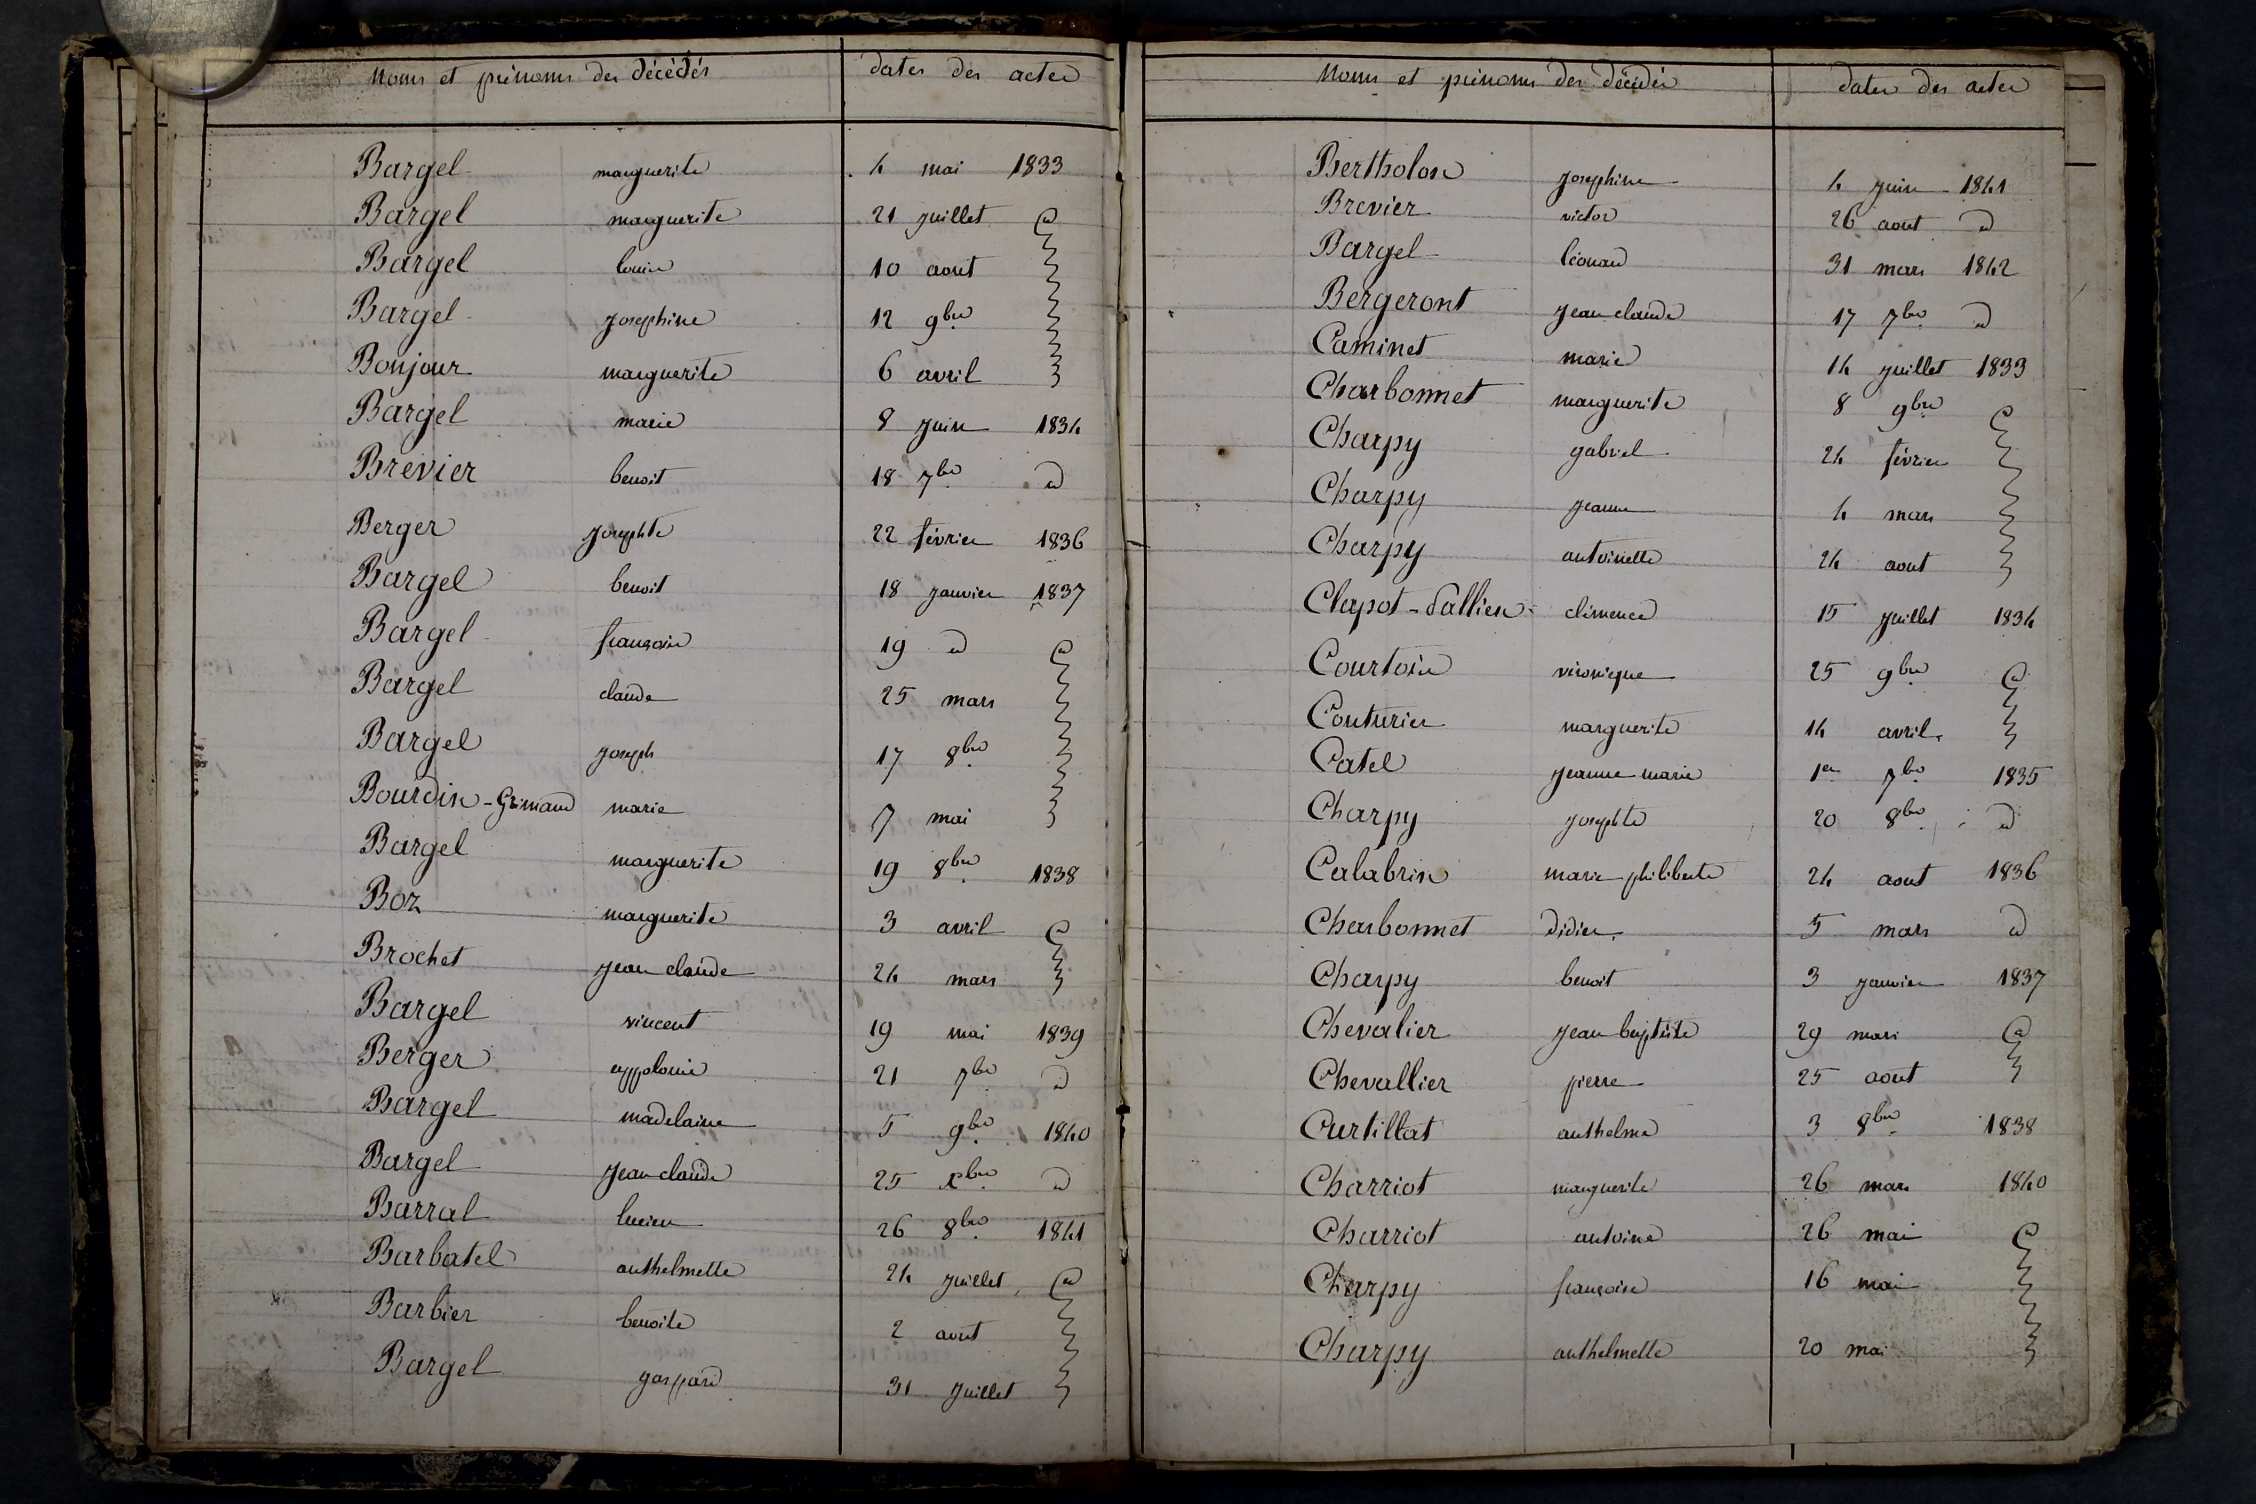 Noms et prénoms des décédés dates des actes
Bargel marguerite 4 mai 1833
Bargel marguerite 21 juillet d
Bargel louise 10 aout
Bargel josephine 12 9bre
Bonjour marguerite 6 avril
Bargel marie 8 juin 1834
Brevier benoit 18 7bre d
Berger josephte 22 février 1836
Bargel benoit 18 janvier 1837
Bargel françois 19 d d
Bargel claude 25 mars
Bargel joseph 17 8bre
Bourdin-Grimaud marie 7 mai
Bargel marguerite 19 8bre 1838
Boz marguerite 3 avril d
Brochet jean claude 24 mars
Bargel vincent 19 mai 1839
Berger appolonie 21 7bre d
Bargel madelaine 5 9bre 1840
Bargel jean claude 25 xbre d
Barral lucien 26 8bre 1841
Barbatel anthelmette 24 juillet d
Barbier benoite 2 aout
Bargel gaspard 31 juillet
Noms et prénoms des décédés dates des actes
Bertholon josephine 4 juin 1841
Brevier victor 26 aout d
Bargel léonard 31 mars 1842
Bergeront jean claude 17 7bre d
Caminet marie 14 juillet 1833
Charbonnet marguerite 8 9bre d
Charpy gabriel 24 février
Charpy jeanne 4 mars
Charpy antoinette 24 aout
Clapot-dallien clémence 15 juillet 1834
Courtois véronique 25 9bre d
Couturier marguerite 14 avril
Catel jeanne marie 1er 7bre 1835
Charpy josephte 20 8bre d
Calabrin marie philiberte 24 aout 1836
Charbonnet didier 5 mars d
Charpy benoit 3 janvier 1837
Chevalier jean baptiste 29 mars d
Chevallier pierre 25 aout
Curtillat anthelme 3 8bre 1838
Charriot marguerite 26 mars 1840
Charriot antoine 26 mai d
Charpy françoise 16 mai
Charpy anthelmette 20 mai